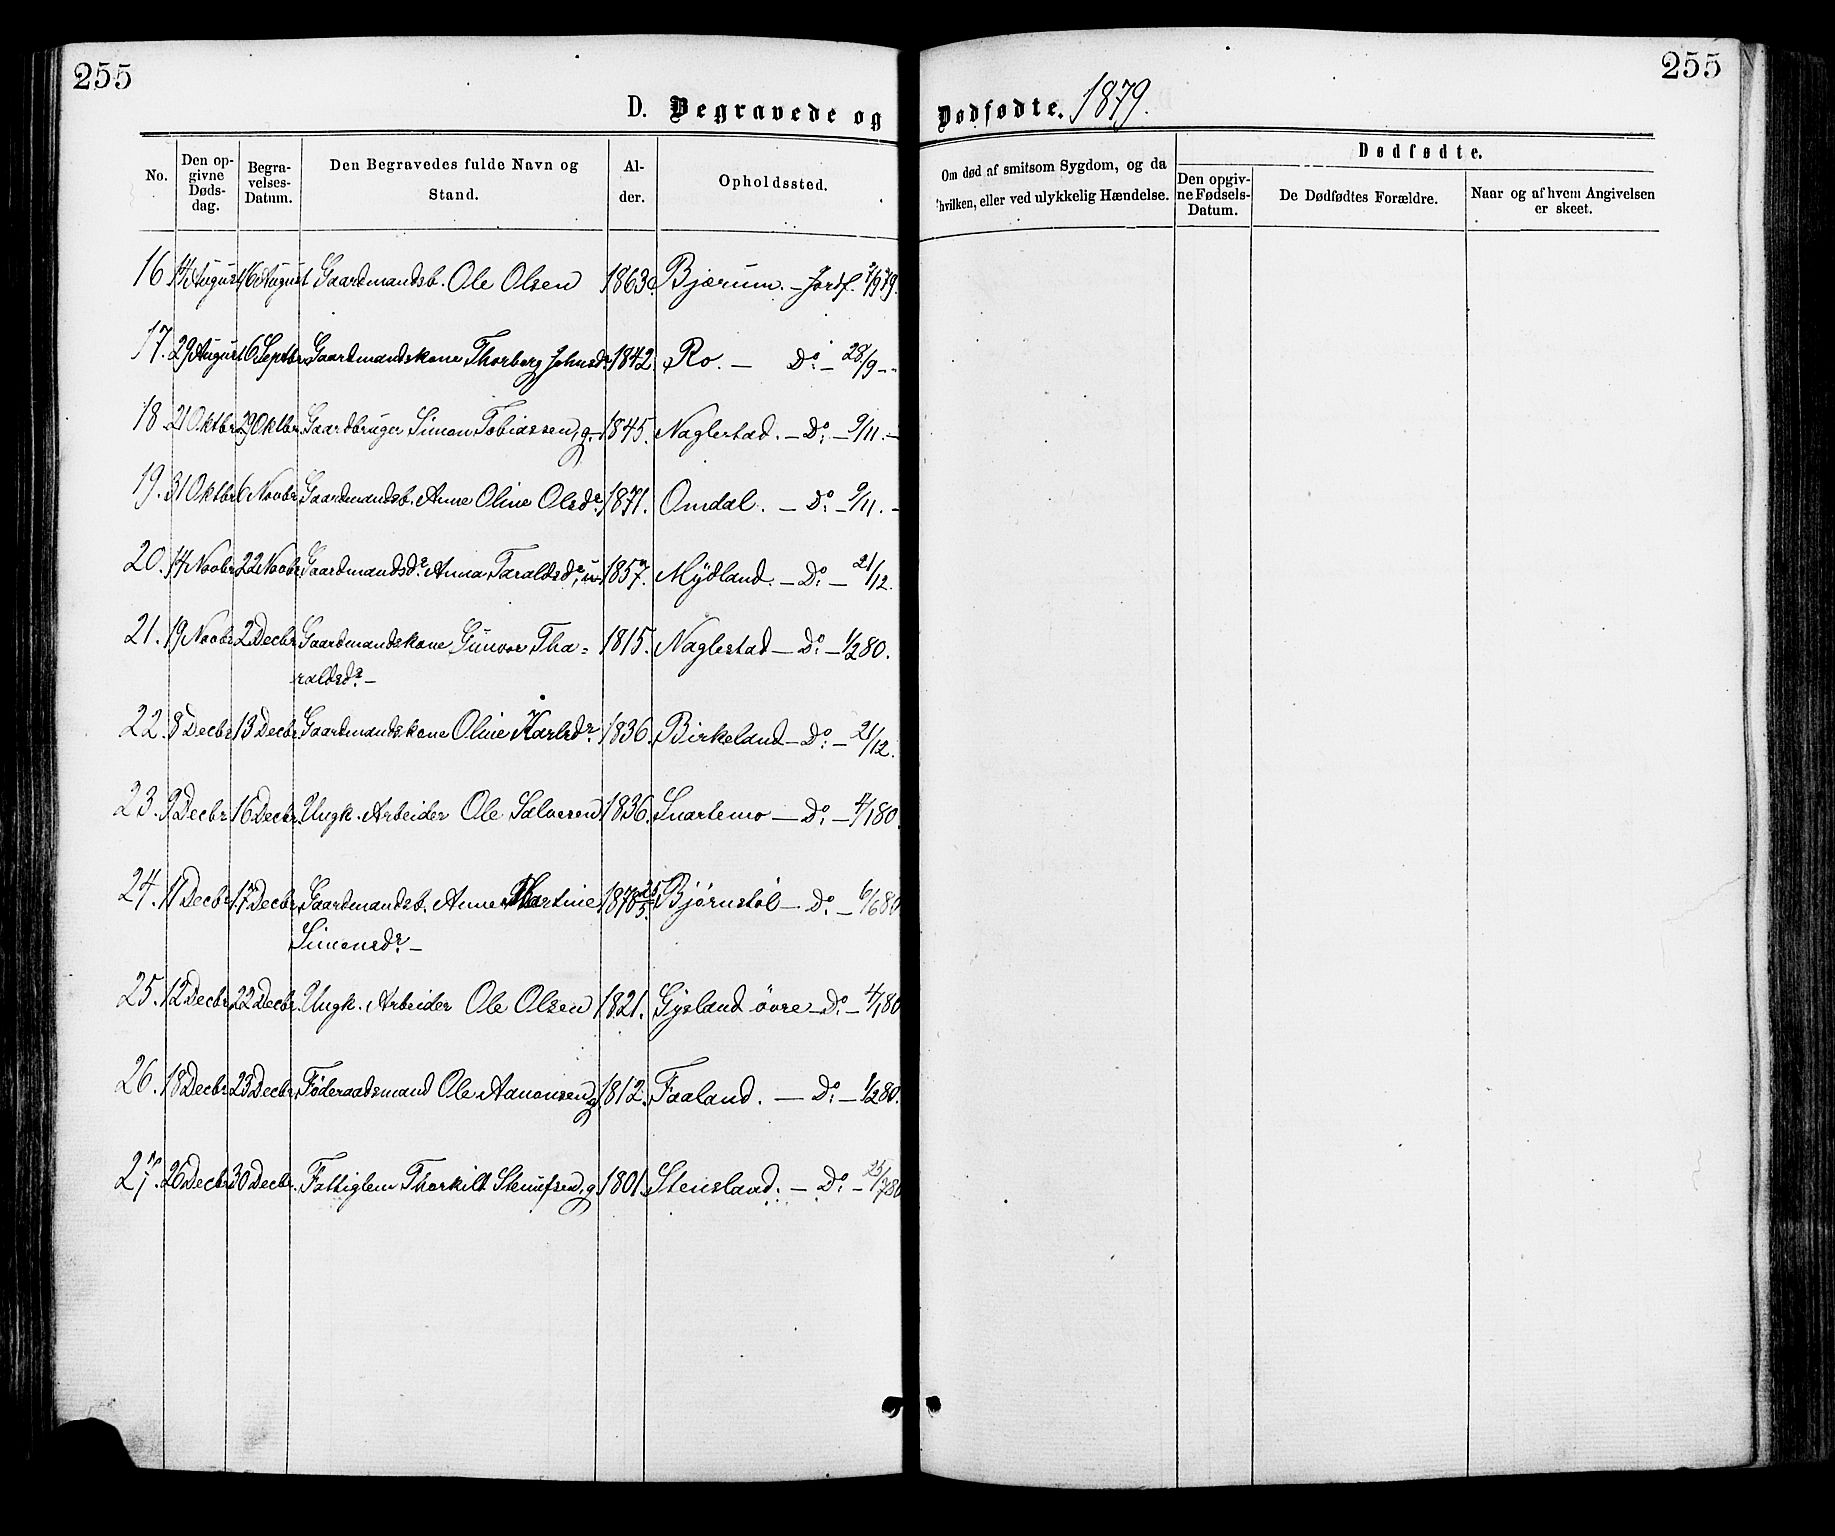 255
255
D. Begravede og Dødfødte. 1879.
No.
Den op-
givne
Døds-
dag.
Begra-
velses-
Datum.
Den Begravedes fulde Navn og
Stand.
Al-
der.
Opholdssted.
Om død af smitsom Sygdom, og da
hvilken, eller ved ulykkelig Hændelse.
Dødfødte.
Den opgiv-
ne Fødsels-
Datum.
De Dødfødtes Forældre.
Naar og af hvem Angivelsen
er skeet.
16 14 August 16 August Gaardmandsb. Ole Olsen 1863 Bjærum. – Jordf. 7/9 79.
17. 29 August 6 Septbr. Gaardmandskone Thorborg Johnsdr. 1842. Ro. – Do. – 28/9 –
18. 21 Oktbr. 29 Oktbr. Gaardbruger Simon Tobiassen, g. 1845. Naglestad. – Do. – 9/11. –
19. 31 Oktbr. 6 Novbr. Gaardmandsb. Anne Oline Olsdr. 1871. Omdal. – Do. – 9/11. –
20. 14 Novbr. 22 Novbr. Gaardmandsdr. Anna Taraldsdr., u. 1857. Mydland. – Do. – 21/12.
21. 19 Novbr. 2 Decbr. Gaardmandskone Gunvor Tha= 1815. Naglestad – Do. – 1/2 80.
raldsdr. –
22. 8 Decbr. 13 Decbr. Gaardmandskone Oline Karlsdr. 1836. Birkeland – Do. – 21/12.
23. 9 Decbr. 16 Decbr. Ungk. Arbeider Ole Salvesen 1836. Snartemo – Do. – 4/1 80.
24. 11 Decbr. 17 Decbr. Gaardmandsb. Anne Martine 1878 25/5. Bjørnstøl – Do. – 6/6 80
Simonsdr. –
25. 12 Decbr. 22 Decbr. Ungk. Arbeider Ole Olsen 1821. Gysland övre – Do. – 4/1 80
26. 18 Decbr. 23 Decbr. Føderaadsmand Ole Aanensen, g. 1812. Faaland. – Do. – 1/2 80.
27. 26 Decbr. 30 Decbr. Fattiglem Thorkild g. 1801. Stensland. – Do. – 25/7 80